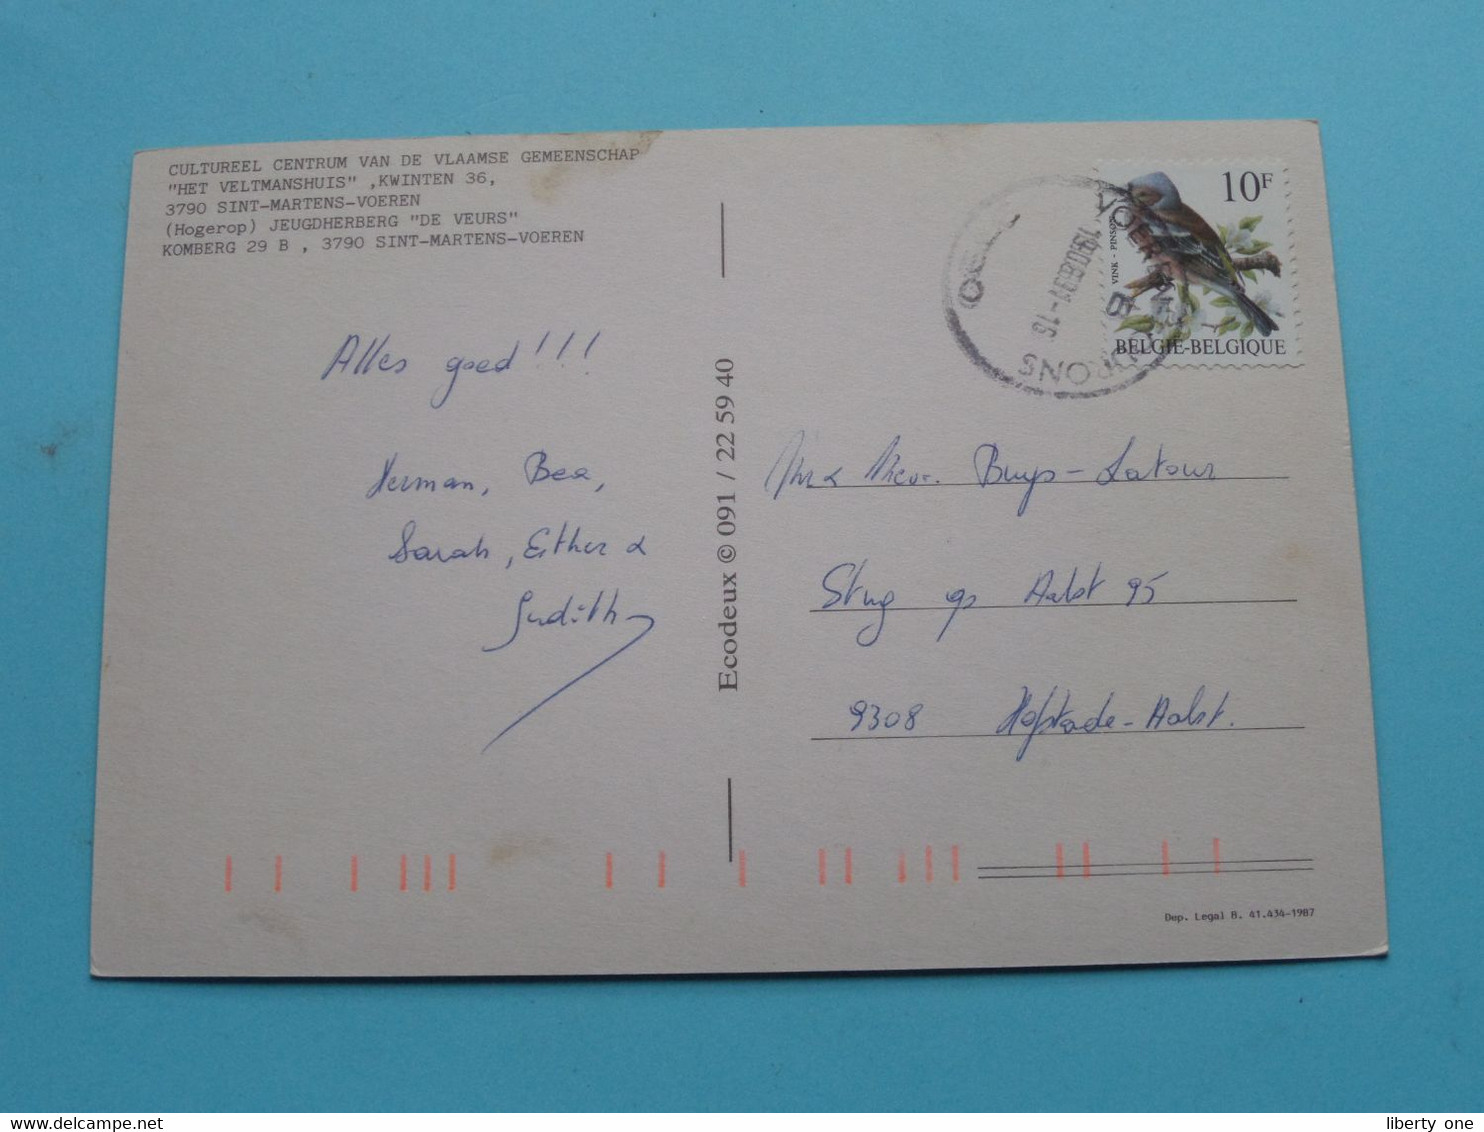 CULTUREEL CENTRUM VAN DE VLAAMSE GEMEENSCHAP
"HET VELTMANSHUIS" ,KWINTEN 36,
3790 SINT-MARTENS-VOEREN
(Hogerop) JEUGDHERBERG "DE VEURS"
KOMBERG 29 B , 3790 SINT-MARTENS-VOEREN
Alles goed!!!
Herman, Bea,
Sarah, Esther &
Judith
Ecodeux © 091 / 22 59 40
10F
VINK - PINSON
BELGIE-BELGIQUE
VOEREN
Mr & Mevr. Buys-Latour
Stwg op Aalst 95
9308 Hofstade-Aalst.
Dep. Legal B. 41.434-1987
delcampe.net
liberty one